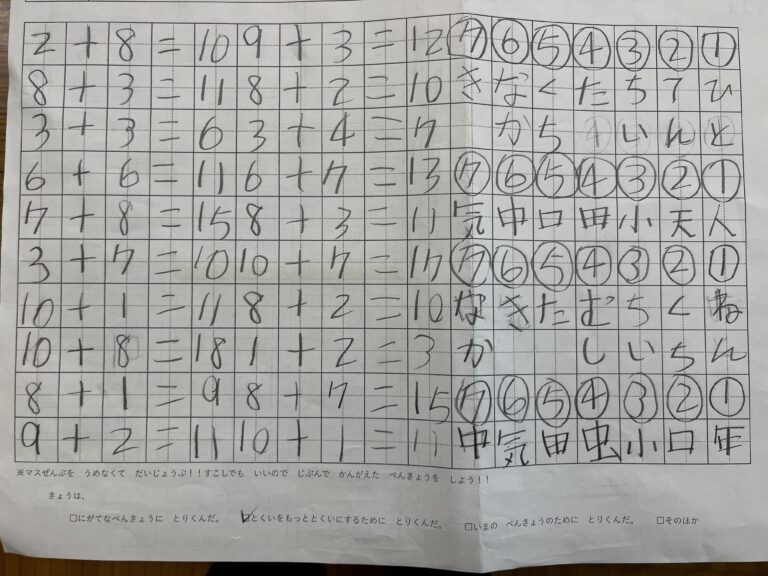 2+8=10 9+3=12 ⑦⑥⑤④③②①
8+3=11 8+2=10 きなくたちてひ
3+3=6 3+4=7 かちいんと
6+6=11 6+7=13 ⑦⑥⑤④③②①
7+8=15 8+3=11 気中口田小天人
3+7=10 10+7=17 ⑦⑥⑤④③②①
10+1=11 8+2=10 なきたむちくね
10+8=18 1+2=3 かしいちん
8+1=9 8+7=15 ⑦⑥⑤④③②①
9+2=11 10+1=11 中気田虫小口年
※マスぜんぶを うめなくて だいじょうぶ!!すこしでも いいので じぶんで かんがえた べんきょうを しよう!!
きょうは、
□にがてなべんきょうに とりくんだ。 ☑とくいをもっととくいにするために とりくんだ。 □いまの べんきょうのために とりくんだ。 □そのほか